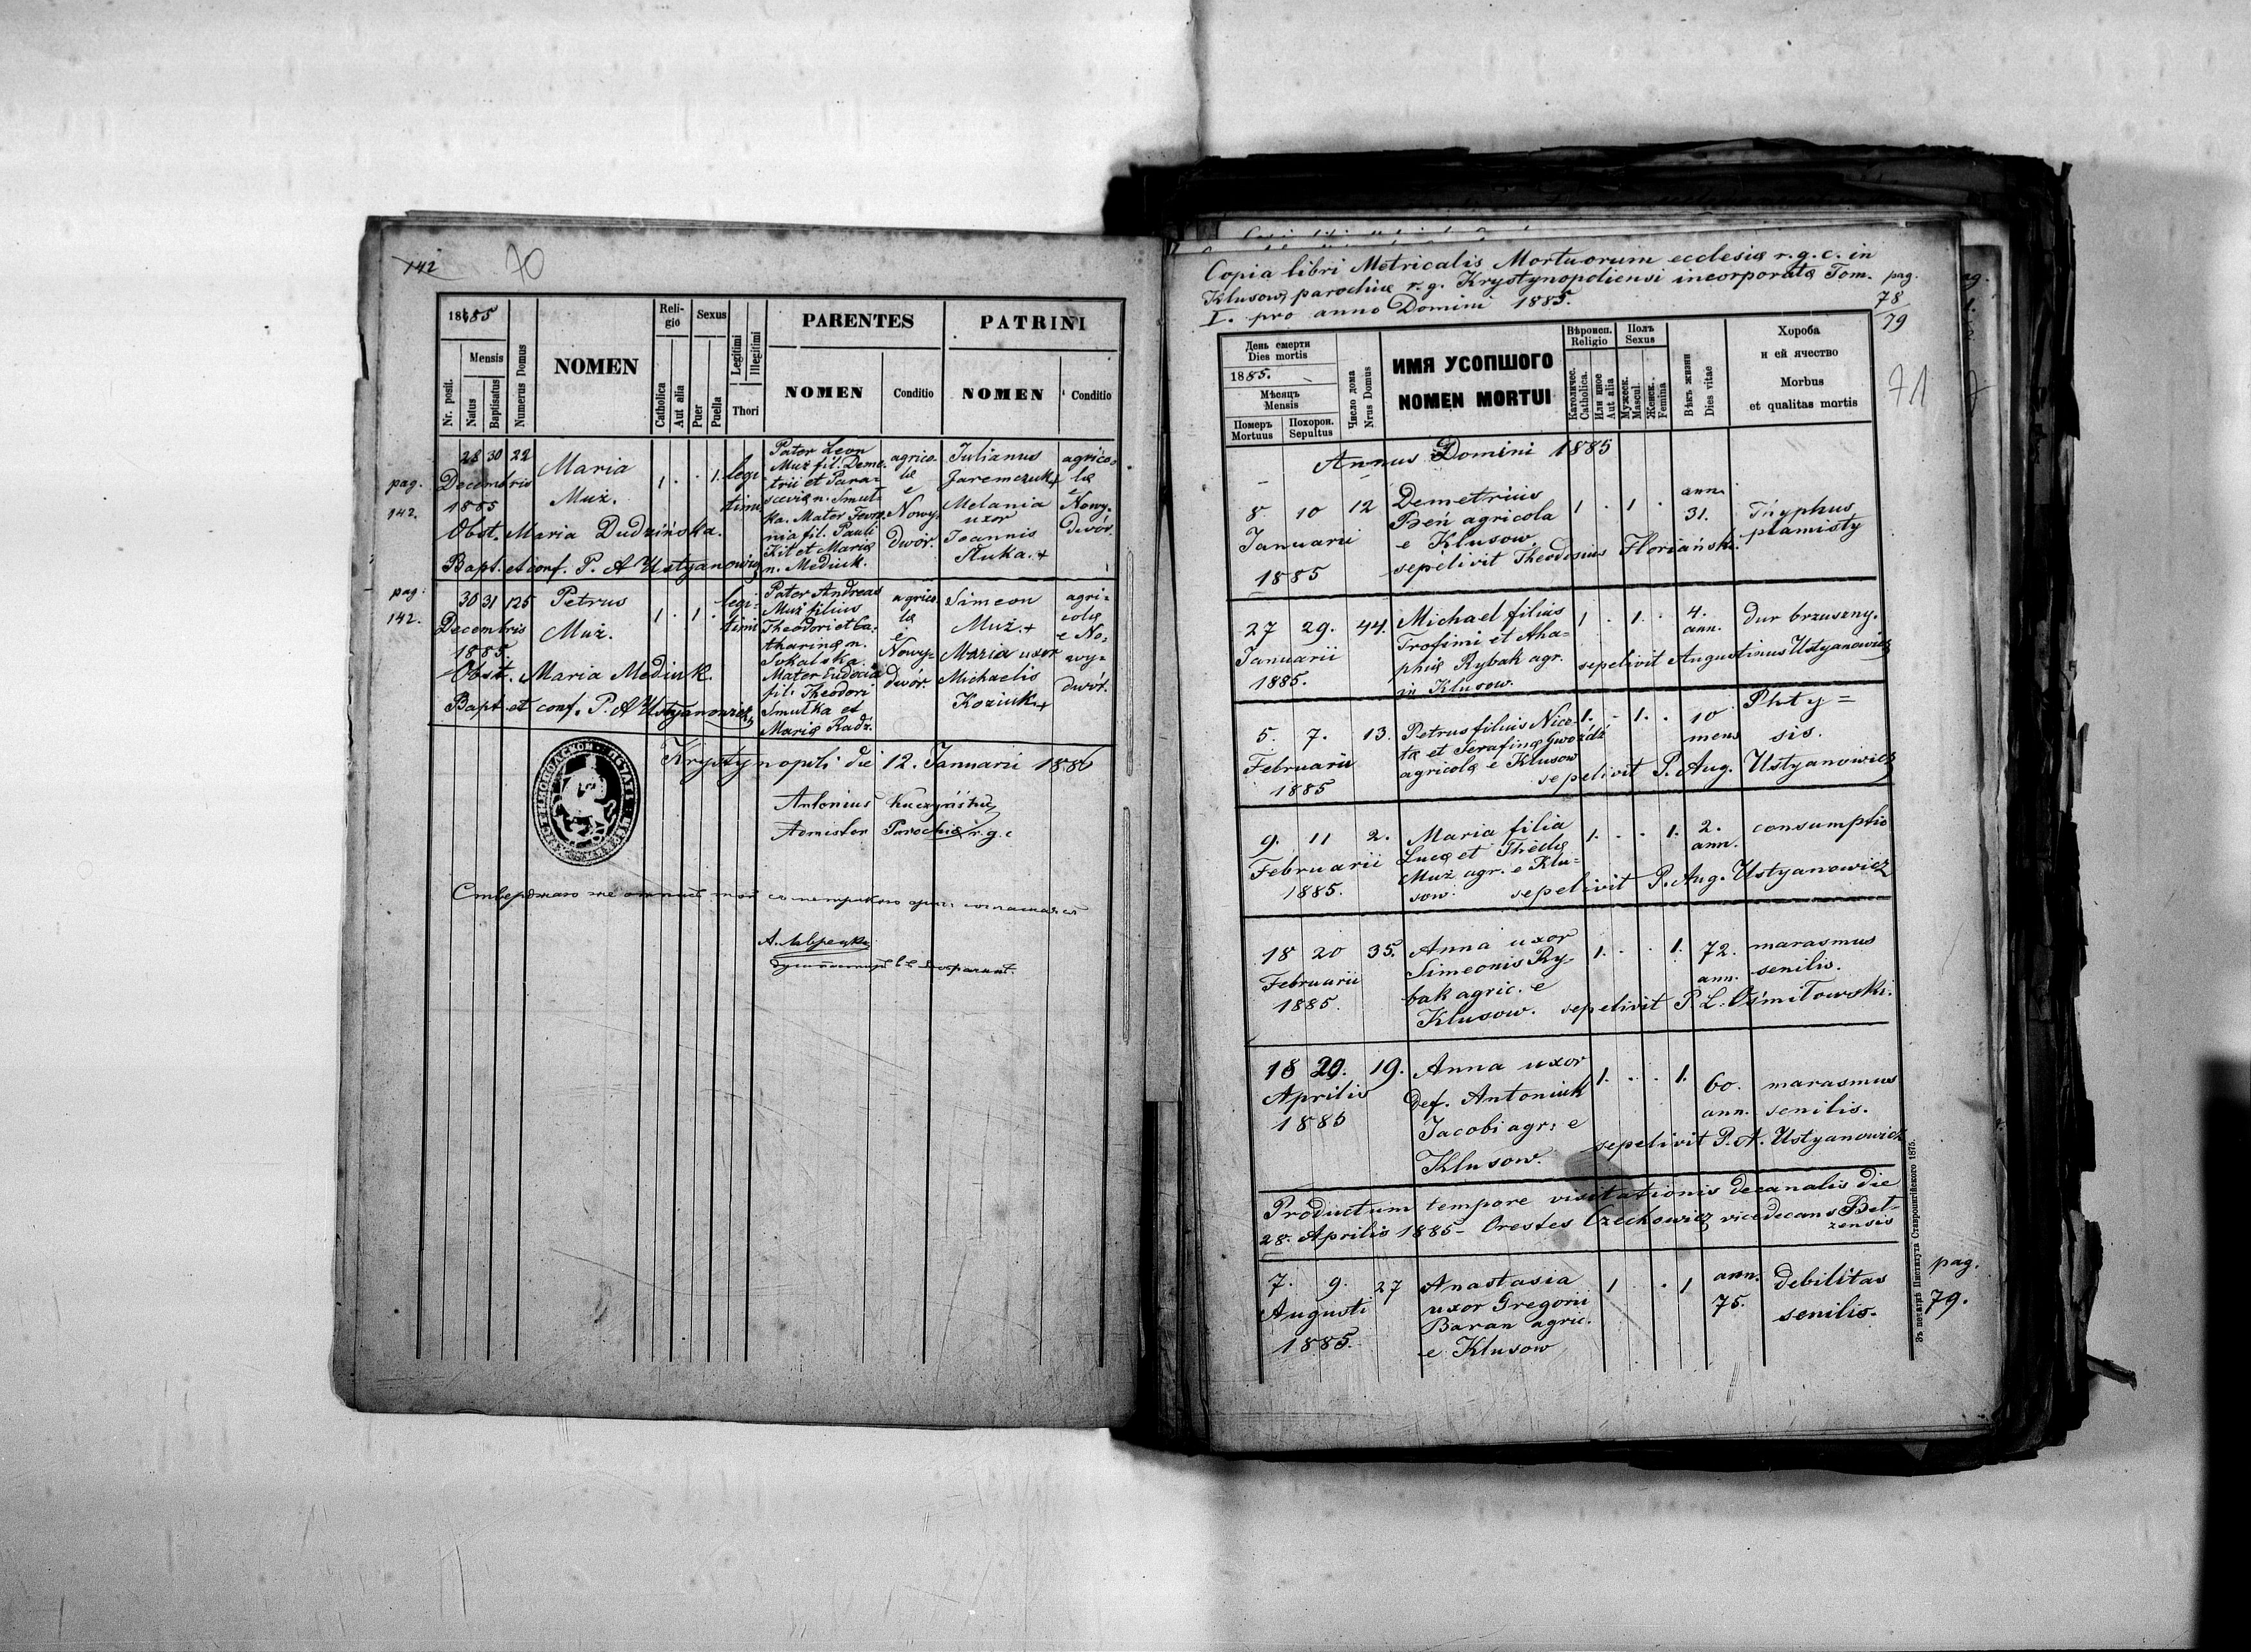 142
70
1885
Nr. posit.
Mensis
Natus
Baptisatus
Numerus Domus
NOMEN
Religio
Catholica
Aut alia
Sexus
Puer
Puella
Legitimi
Illegitimi
Thori
PARENTES
NOMEN
Conditio
PATRINI
NOMEN
Conditio
pag.
142.
28 30 22
Decembris
1885
Maria
Muż.
1 . . 1.
legi
timi
Pater Leon
Muż fil. Deme-
trii et Para-
sceviæ n. Smut-
ka. Mater Fevro-
nia fil. Pauli
Kit et Mariæ
n. Mediuk.
agrico-
læ
e
Nowy-
Dwór.
Iulianus
Jaremczuk +
Melania
uxor
Joannis
Sluka. +
agrico-
læ
e
Nowy-
Dwór.
Obst. Maria Dudzińska.
Bapt. et conf. P. A Ustyanowicz
pag:
142.
30 31 125
Decembris
1885.
Petrus
Muż.
1 . 1 .
legi-
timi
Pater Andreas
Muż filius
Theodori et Ca-
tharinæ n.
Sokalska.
Mater Eudocia
fil: Theodori
Smutka et
Mariæ Radź.
agrico
læ
e
Nowy-
dwór.
Simeon
Muż. +
Maria uxor
Michaelis
Koziuk +
agri-
colæ
e No-
wy-
dwór.
Obst. Maria Mediuk.
Bapt et conf. P. A Ustyanowicz
Krystynopoli die 12. Januarii 1886
Antonius
Admistor Parochiæ r. g. c
Copia libri Metricalis Mortuorum ecclesiæ r. g. c. in
Klusow, parochiæ r. g. Krystynopoliensi incorporatæ Tom.
I. pro anno Domini 1885.
pag.
78
79
71
День смерти
Dies mortis
1885.
Мѣсяцъ
Mensis
Померъ
Mortuus
Похорон.
Sepultus
Число дома
Nrus Domus
ИМЯ УСОПШОГО
NOMEN MORTUI
Вѣроисп.
Religio
Католичес.
Catholica.
Или иное
Aut alia
Полъ
Sexus
Мужеск.
Mascul.
Женск.
Femina
Вѣкъ жизни
Dies vitae
Хороба
и ей ячество
Morbus
et qualitas mortis
Annus Domini 1885
8 10 12
Januarii
1885
Demetrius
Beń agricola
e Klusow.
1 . 1 .
ann.
31.
Tnyphus
plamisty
sepelivit Theodosius Floriański.
27 29. 44.
Januarii
1885.
Michael filius
Trofimi et Aha-
phiæ Rybak agr.
in Klusow.
1 . 1. .
4.
ann.
dur brzuszny.
sepelivit Augustinus Ustyanowicz
5. 7. 13.
Februarii
1885
Petrus filius Nico-
tæ et Serafinæ Gwoźdź
agricolæ e Klusow
1. . 1. .
10
mens
Phty=
sis.
sepelivit P. Aug. Ustyanowicz
9. 11 2.
Februarii
1885.
Maria filia
Lucæ et Theclæ
Muż agr. e Klu-
sow.
1. . . 1.
2.
ann.
consumptio
sepelivit P. Aug. Ustyanowicz
18 20 35.
Februarii
1885.
Anna uxor
Simeonis Ry-
bak agric. e
Klusow.
1. . . 1.
72.
ann.
marasmus
senilis.
sepelivit P. L. Ośmiłowski.
18 20. 19.
Aprilis
1885
Anna uxor
def. Antoniuk
Jacobi agr: e
Klusow.
1. . . 1.
60.
ann.
marasmus
senilis.
sepelivit P. A. Ustyanowicz
Productum tempore visitationis decanalis die
28. Aprilis 1885 - Orestes Czechowicz vicedecans Bel-
zensis
7. 9. 27
Augusti
1885.
Anastasia
uxor Gregorii
Baran agric.
e Klusow
1 . . 1
ann.
75.
debilitas
senilis.
pag.
79.
Зъ печатнѣ Института Ставропигійского 1875.